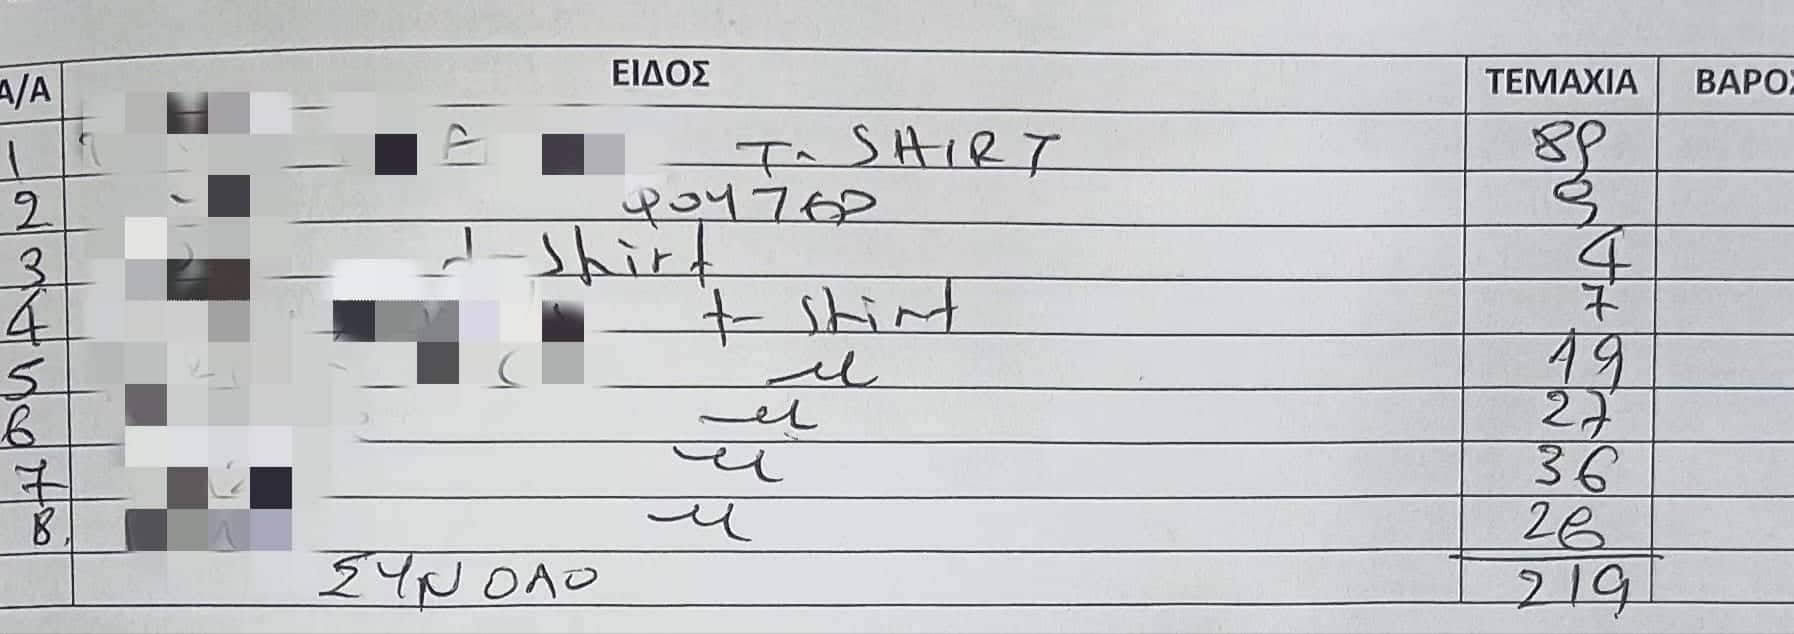 Α/Α ΕΙΔΟΣ ΤΕΜΑΧΙΑ ΒΑΡΟΣ
1 T- SHIRT 89
2 ΦΟΥΤΕΡ 9
3 t-shirt 4
4 t- shirt 7
5 -//- 19
6 -//- 27
7 -//- 36
8. -//- 26
ΣΥΝΟΛΟ 219